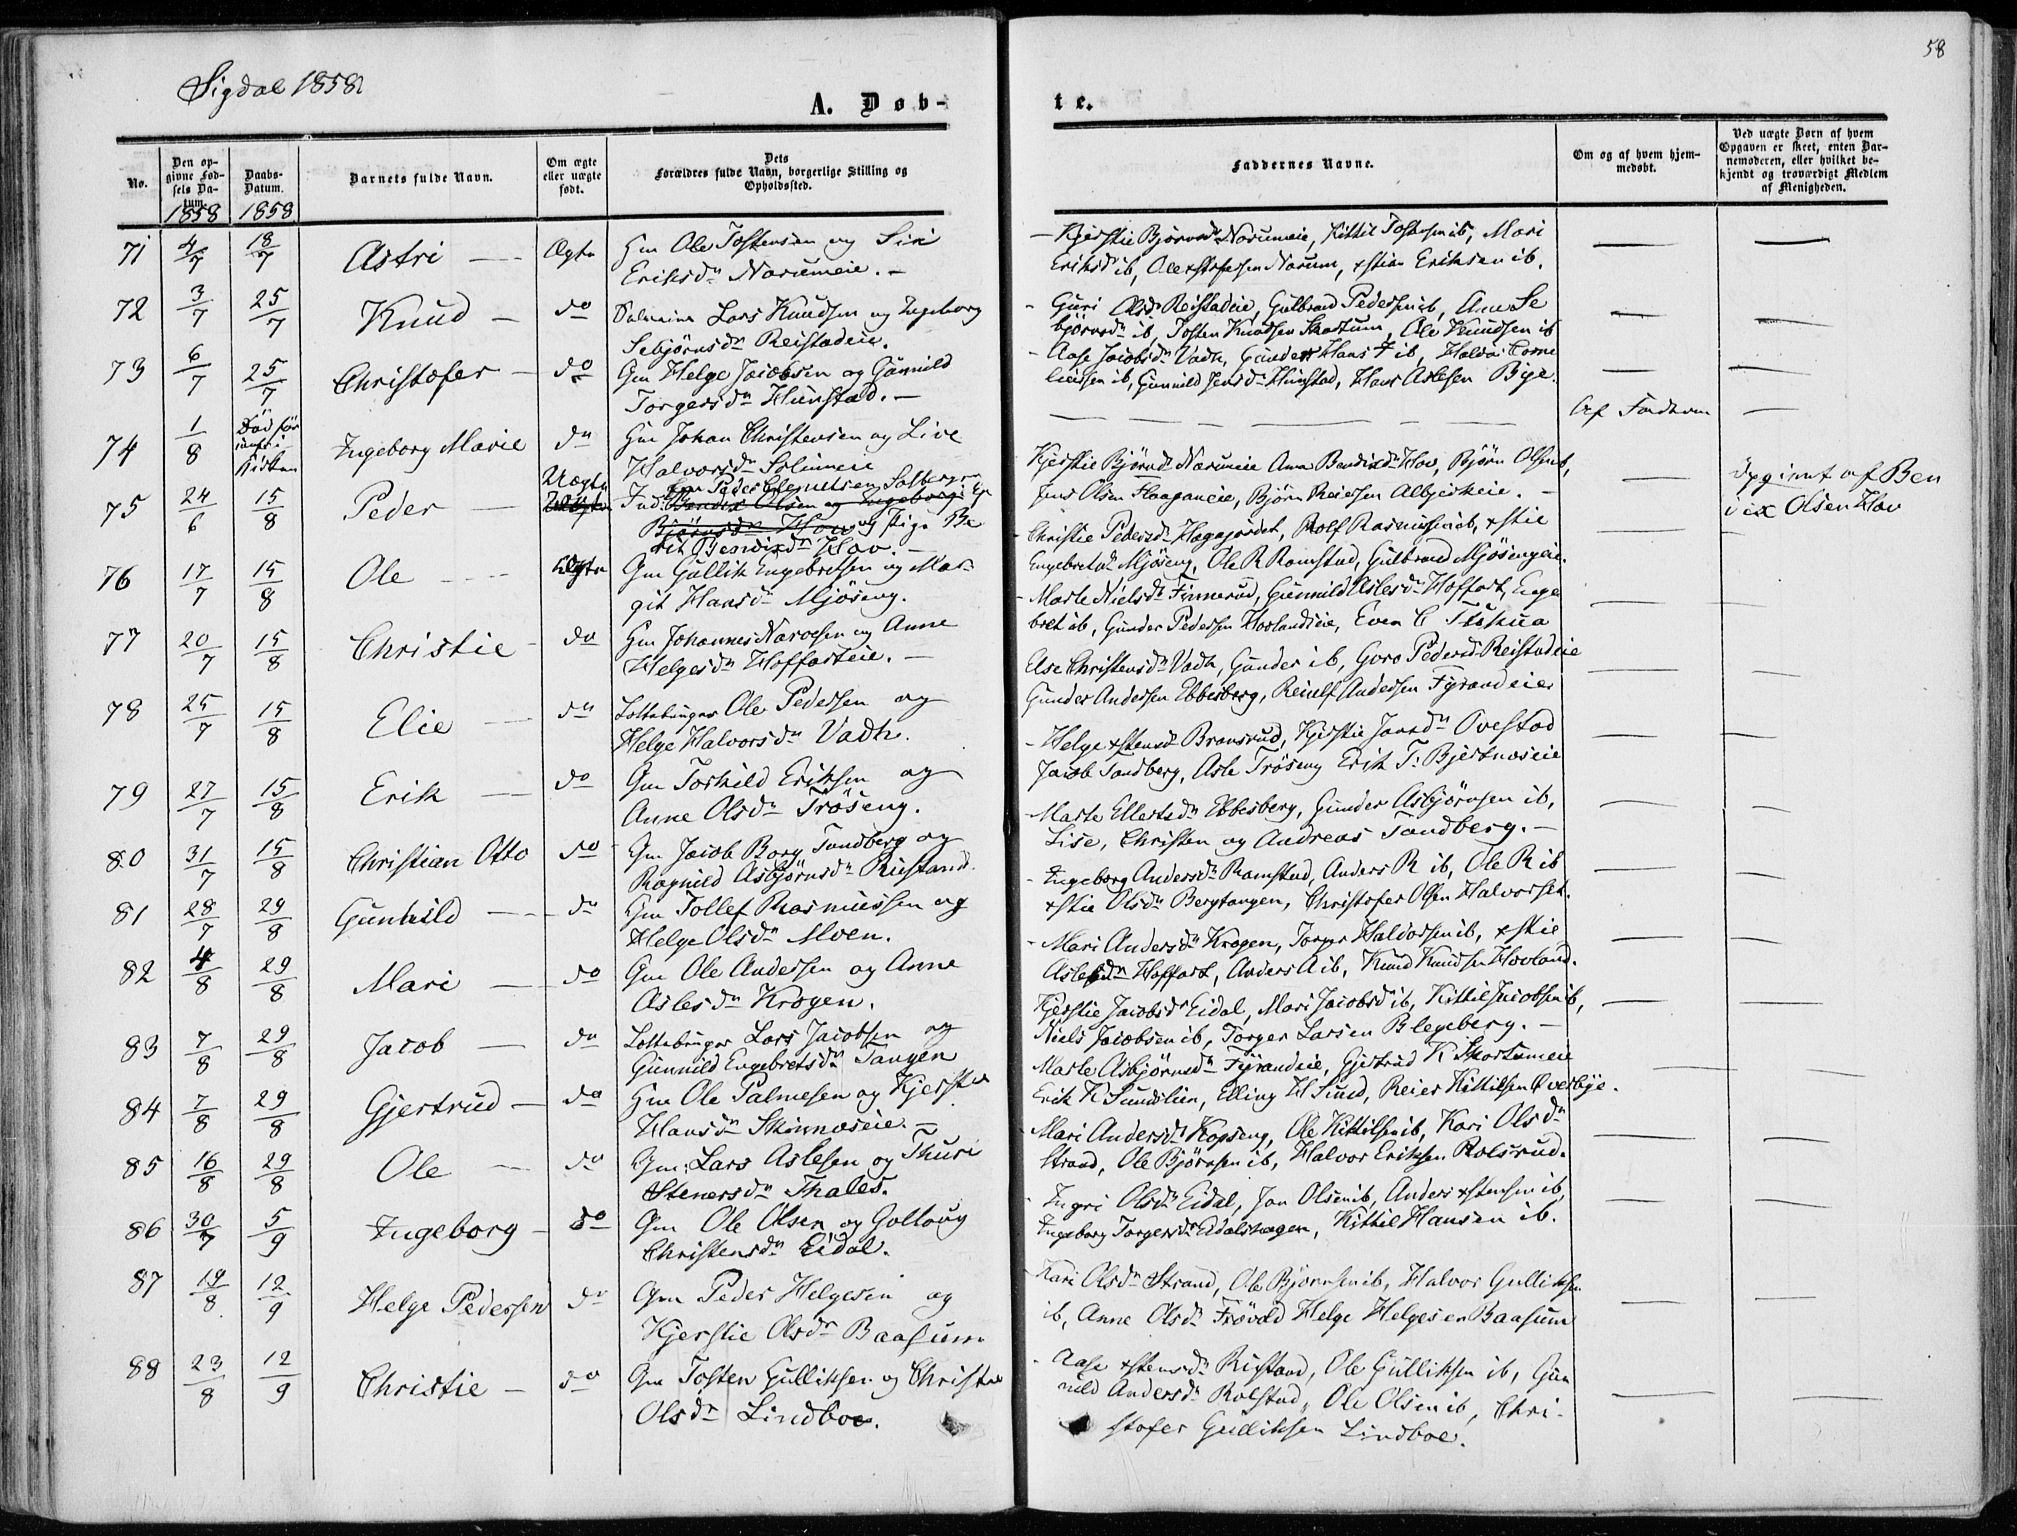 58
Sigdal 1858
A. Døb-
te.
No.
Den op-
givne Fød-
sels Da-
tum.
1858
Daabs-
Datum.
1858
Barnets fulde Navn.
Om ægte
eller uægte
født.
Dets
Forældres fulde Navn, borgerlige Stilling og
Opholdssted.
Faddernes Navne.
Om og af hvem hjem-
medøbt.
Ved uægte Børn af hvem
Opgaven er skeet, enten Bar-
nemoderen, eller hvilket be-
kjendt og troværdigt Medlem
af Menigheden.
71 4/7 18/7 Astri Ægte Gm Ole Tostensen og Siri
Eriksdr Narumeie.
Kjerstie Bjørnsdr Narumeie, Kittil Tostensen ib, Mari
Eriksd ib, Ole Narum, Eriksen ib.
72 3/7 25/7 Knud do Lars Knudsen og Ingeborg
Sebjørnsdr Reistadeie.
Guri Olsdr Reistadeie, Gulbrand Pedersen ib, Ane Se
bjørnsdr ib, Tosten Knudsen Skartum, Ole Knudsen ib
73 6/7 25/7 Christofer do Gm Helge Jacobsen og Gunnild
Torgersdr Hunstad.
Aase Jacobsdr Vadh, Gunder Hans ib, Corne
liussen ib, Gunnild Jensdr Hunstad, Hans Aslesen Bye.
74 1/8 Død før
Kirken Ingeborg Marie do Gm Johan Christensen og Live
Halvorsdr Solumeie
Af Faderen
75 24/6 15/8 Peder Uægte Peder Clemetsen Solberg
Bendix Olsen og Ingeborg
Bjørnsdr Hov og Pige Be
rit Bendixdr Hov.
Kjerstie Bjørnsdr Narumeie Anna Bendixdr Hov, Bjørn Olsen ib,
Jens Olsen Haaganeie, Bjørn Reiersen Albjerkeie.
Opgivet af Ben
dix Olsen Hov
76 17/7 15/8 Ole Ægte Gm Gullik Engebretsen og Mar
git Hansdr Mjøseng.
Christie Pedersdr Hagajordet, Rolf Rasmussen ib,
Engebretsdr Mjøseng, Ole R Ramstad, Gulbrand Mjøsengeie.
77 20/7 15/8 Christie do Gm Johannes Narvesen og Anne
Helgesdr Hoffarteie.
Marte Nielsdr Finnerud, Gunnild Aslesdr Hoffart, Enge
bret ib, Gunder Pedersen Hovlandseie, Even C
78 25/7 15/8 Elie do Ole Pedersen og
Helge Halvorsdr Vadh.
Else Christensdr Vadh, Gunder ib, Goro Pedersd Reistadeie
Gunder Andersen Ebbesberg, Reinulf Andersen Fyrandeie
79 27/7 15/8 Erik do Gm Torkild Eriksen og
Anne Olsdr Trøseng.
Helge Bransrud, Kjerstie Jonsdr Ovestad
Jacob Tandberg, Asle Trøseng Erik T. Bjertnæseie
80 31/7 15/8 Christian Otto do Gm Jacob Borg Tandberg og
Ragnild Asbjørnsdr Rustand.
Marte Ellertsdr Ebbesberg, Gunder Asbjørnsen ib,
Lise, Christen og Andreas Tandberg.
81 28/7 29/8 Gunhild do Gm Tollef Rasmussen og
Helge Olsdr Moen.
Ingeborg Andersdr Ramstad, Anders R ib, Ole R ib
Olsdr Bergtangen, Christofer Olsen Halvorset.
82 4/8 29/8 Mari do Gm Ole Andersen og Anne
Aslesdr Krogen.
Mari Andersdr Krogen, Torger Halvorsen ib,
Aslesdr Hoffart, Anders A ib, Knud Knudsen Hovland.
83 7/8 29/8 Jacob do Lars Jacobsen og
Gunnild Engebretsdr Tangen
Kjerstie Jacobsdr Eidal, Mari Jacobsd ib, Kittil Jacobsen ib,
Niels Jacobsen ib, Torger Larsen Blegeberg.
84 7/8 29/8 Gjertrud do Gm Ole Palmesen og Kjerstie
Hansdr Skinnæseie.
Marte Asbjørnsdr Fyrandeie, Gjertrud K Skartumeie
Erik K Sundlien, Elling H Sund, Reier Kittilsen Overbye.
85 16/8 29/8 Ole do Gm. Lars Aslesen og Thuri
Stenersdr Thales.
Mari Andersdr Kopseng, Ole Kittilsen ib, Kari Olsdr
Strand, Ole Bjørnsen ib, Halvor Eriksen Rolsrud.
86 30/7 5/9 Ingeborg do Gm Ole Olsen og Gollaug
Christensdr Eidal.
Ingri Olsdr Eidal, Jon Olsen ib, Anders ib,
Ingeborg Torgersdr Eidalshagen, Kittil Hansen ib.
87 19/8 12/9 Helge Pedersen do Gm Peder Helgesen og
Kjerstie Olsdr Baasum
Kari Olsdr Strand, Ole Bjørnsen ib, Halvor Gulliksen
ib, Anne Olsdr Frøvold Helge Helgesen Baasum
88 23/8 12/9 Christie do Gm Tosten Gulliksen og Christie
Olsdr Lindboe.
Aase Rustand, Ole Gulliksen ib, Gun
nild Andersdr Rolstad, Ole Olsen ib, Chri-
stofer Gulliksen Lindboe.